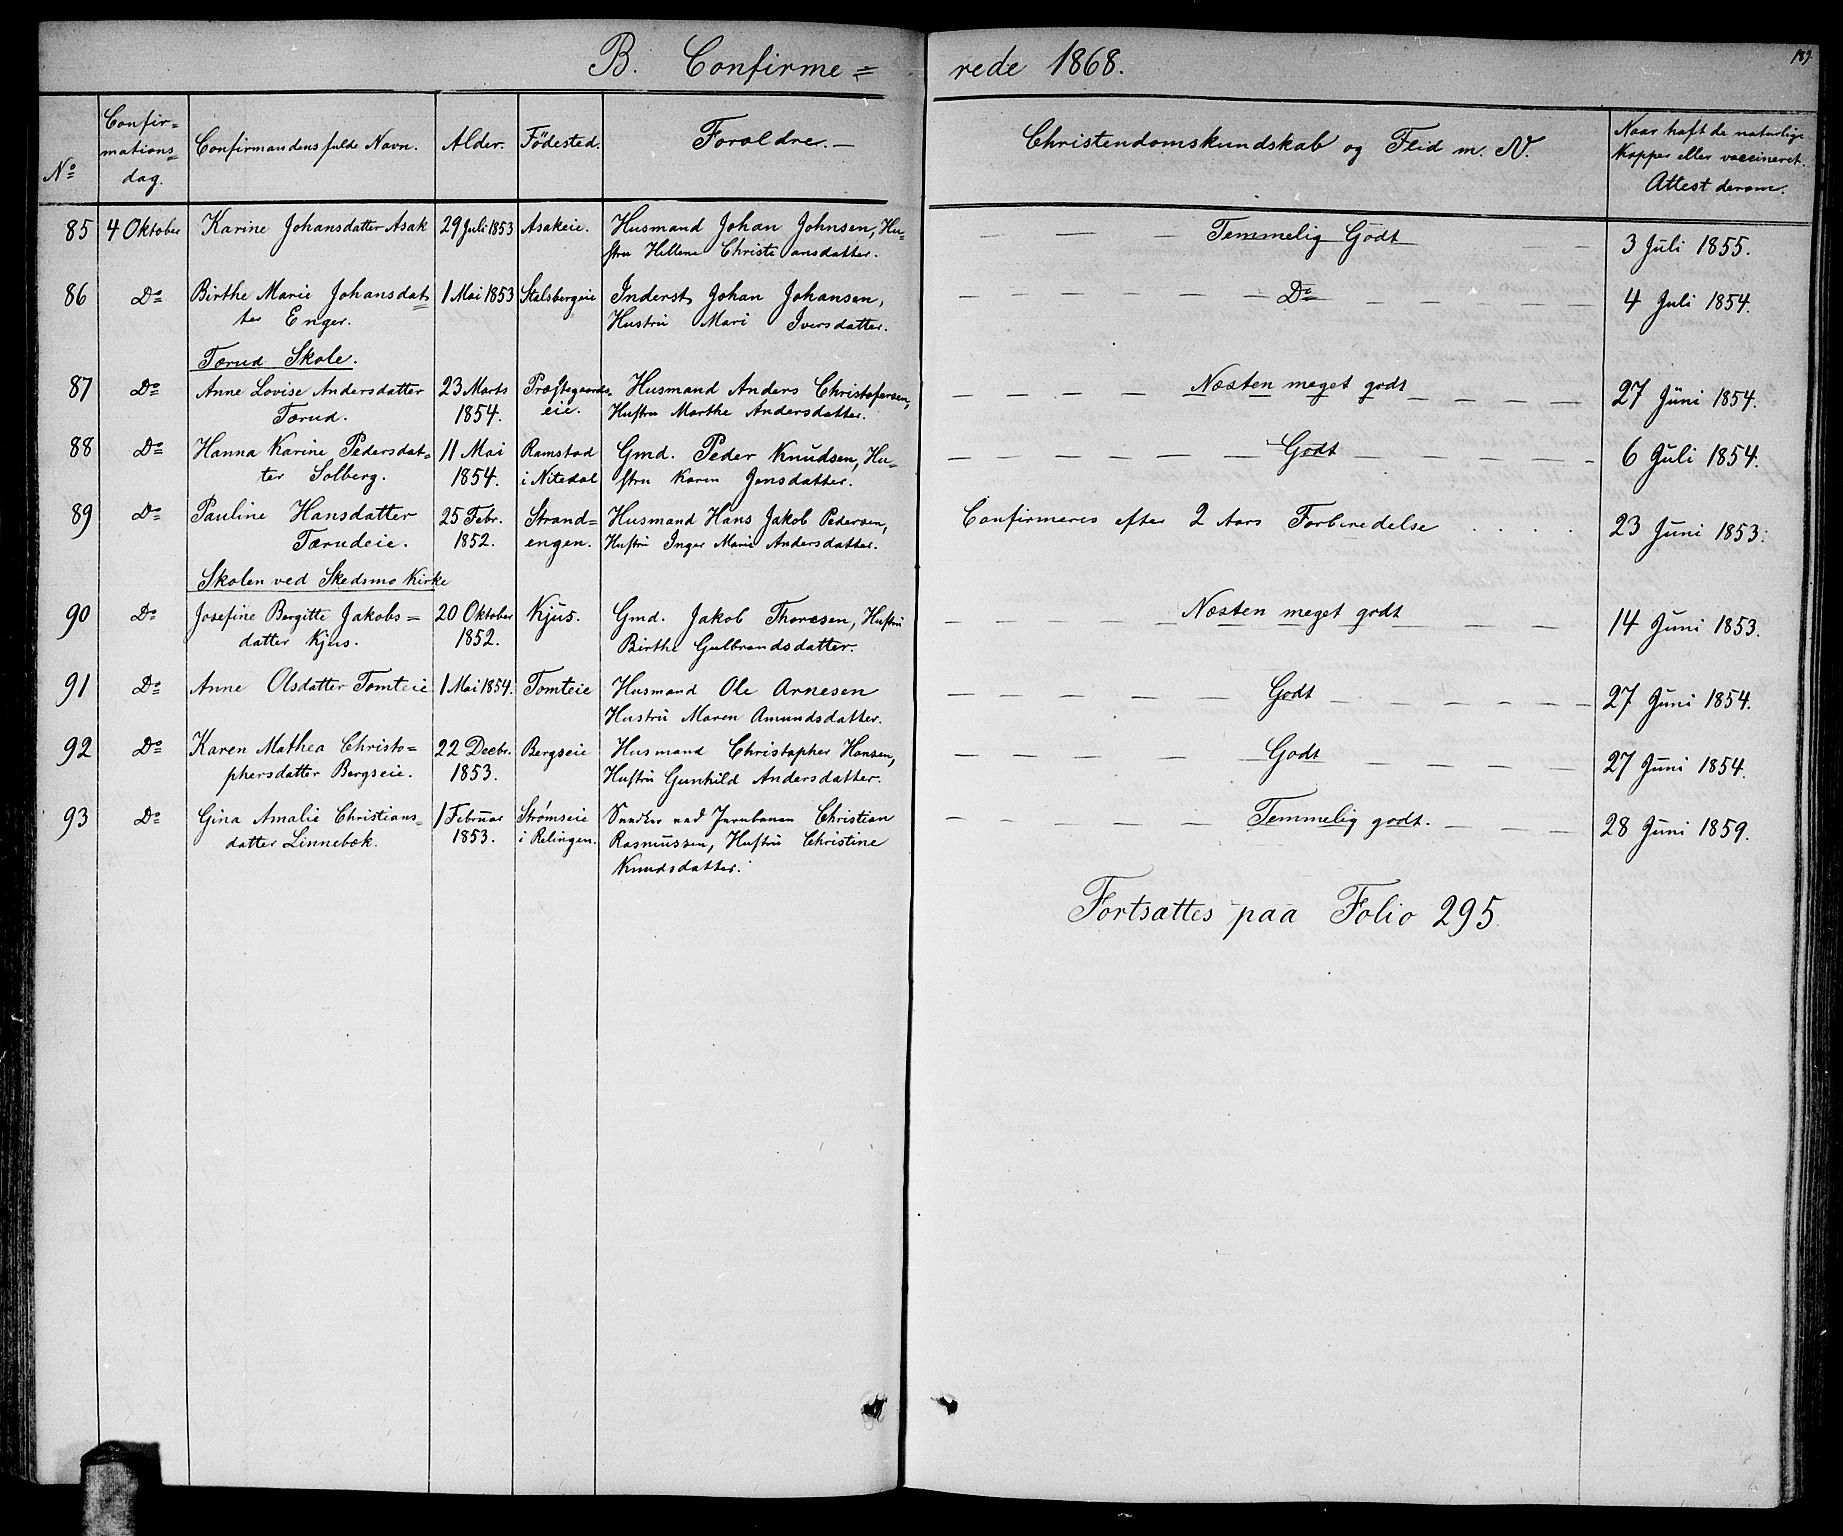 B. Confirme=
rede 1868.
189.
No
Confir=
mations=
dag.
Confirmandens fulde Navn.
Alder.
Födested.
Foræeldre.
Christendomskundskab og Flid m. N.
Naar haft de naturlige
Kopper eller vaccineret.
Attest derom.
85 4 Oktober Karine Johansdatter Asak 29 Juli 1853 Asakeie. Husmand Johan Johnsen, Hu= Temmelig Godt 3 Juli 1855.
stru Hellene Christiansdatter.
86 Do Birthe Marie Johansdat= 1 Mai 1853 Stalsbergeie Inderst Johan Johansen, Do 4 Juli 1854.
ter Enger. Hustru Mari Iversdatter.
Tærud Skole.
87 Do Anne Lovise Andersdatter 23 Marts Præstegaards= Husmand Anders Christofersen, Næsten meget godt 27 Juni 1854.
Tærud. 1854. eie. Hustru Marthe Andersdatter.
88 Do Hanna Karine Pedersdat= 11 Mai Ramstad Gmd. Peder Knudsen, Hu= Godt 6 Juli 1854.
ter Solberg. 1854. i Nitedal stru Karen Jensdatter.
89 Do Pauline Hansdatter 25 Febr. Strand= Husmand Hans Jakob Pedersen, Confirmeres efter 2 Aars Forberedelse 23 Juni 1853.
Tærudeie. 1852. engen. Hustru Inger Marie Andersdatter.
Skolen ved Skedsmo Kirke
90 Do Josefine Bergitte Jakobs= 20 Oktober Kjus. Gmd. Jakob Thoresen, Hustru Næsten meget godt 14 Juni 1853.
datter Kjus. 1852. Birthe Gulbrandsdatter.
91 Do Anne Olsdatter Tomteie 1 Mai 1854. Tomteie Husmand Ole Arnesen Godt 27 Juni 1854.
Hustru Maren Amundsdatter.
92 Do Karen Mathea Christo= 22 Decbr. Bergseie Husmand Christopher Hansen, Godt 27 Juni 1854.
phersdatter Bergseie. 1853. Hustru Gunhild Andersdatter.
93 Do Gina Amalie Christians= 1 Februar Strømseie Snedker ved Jernbanen Christian Temmelig godt. 28 Juni 1859.
datter Linnebæk. 1853. i Relingen. Rasmussen, Hustru Christine
Knudsdatter.
Fortsættes paa Folio 295.